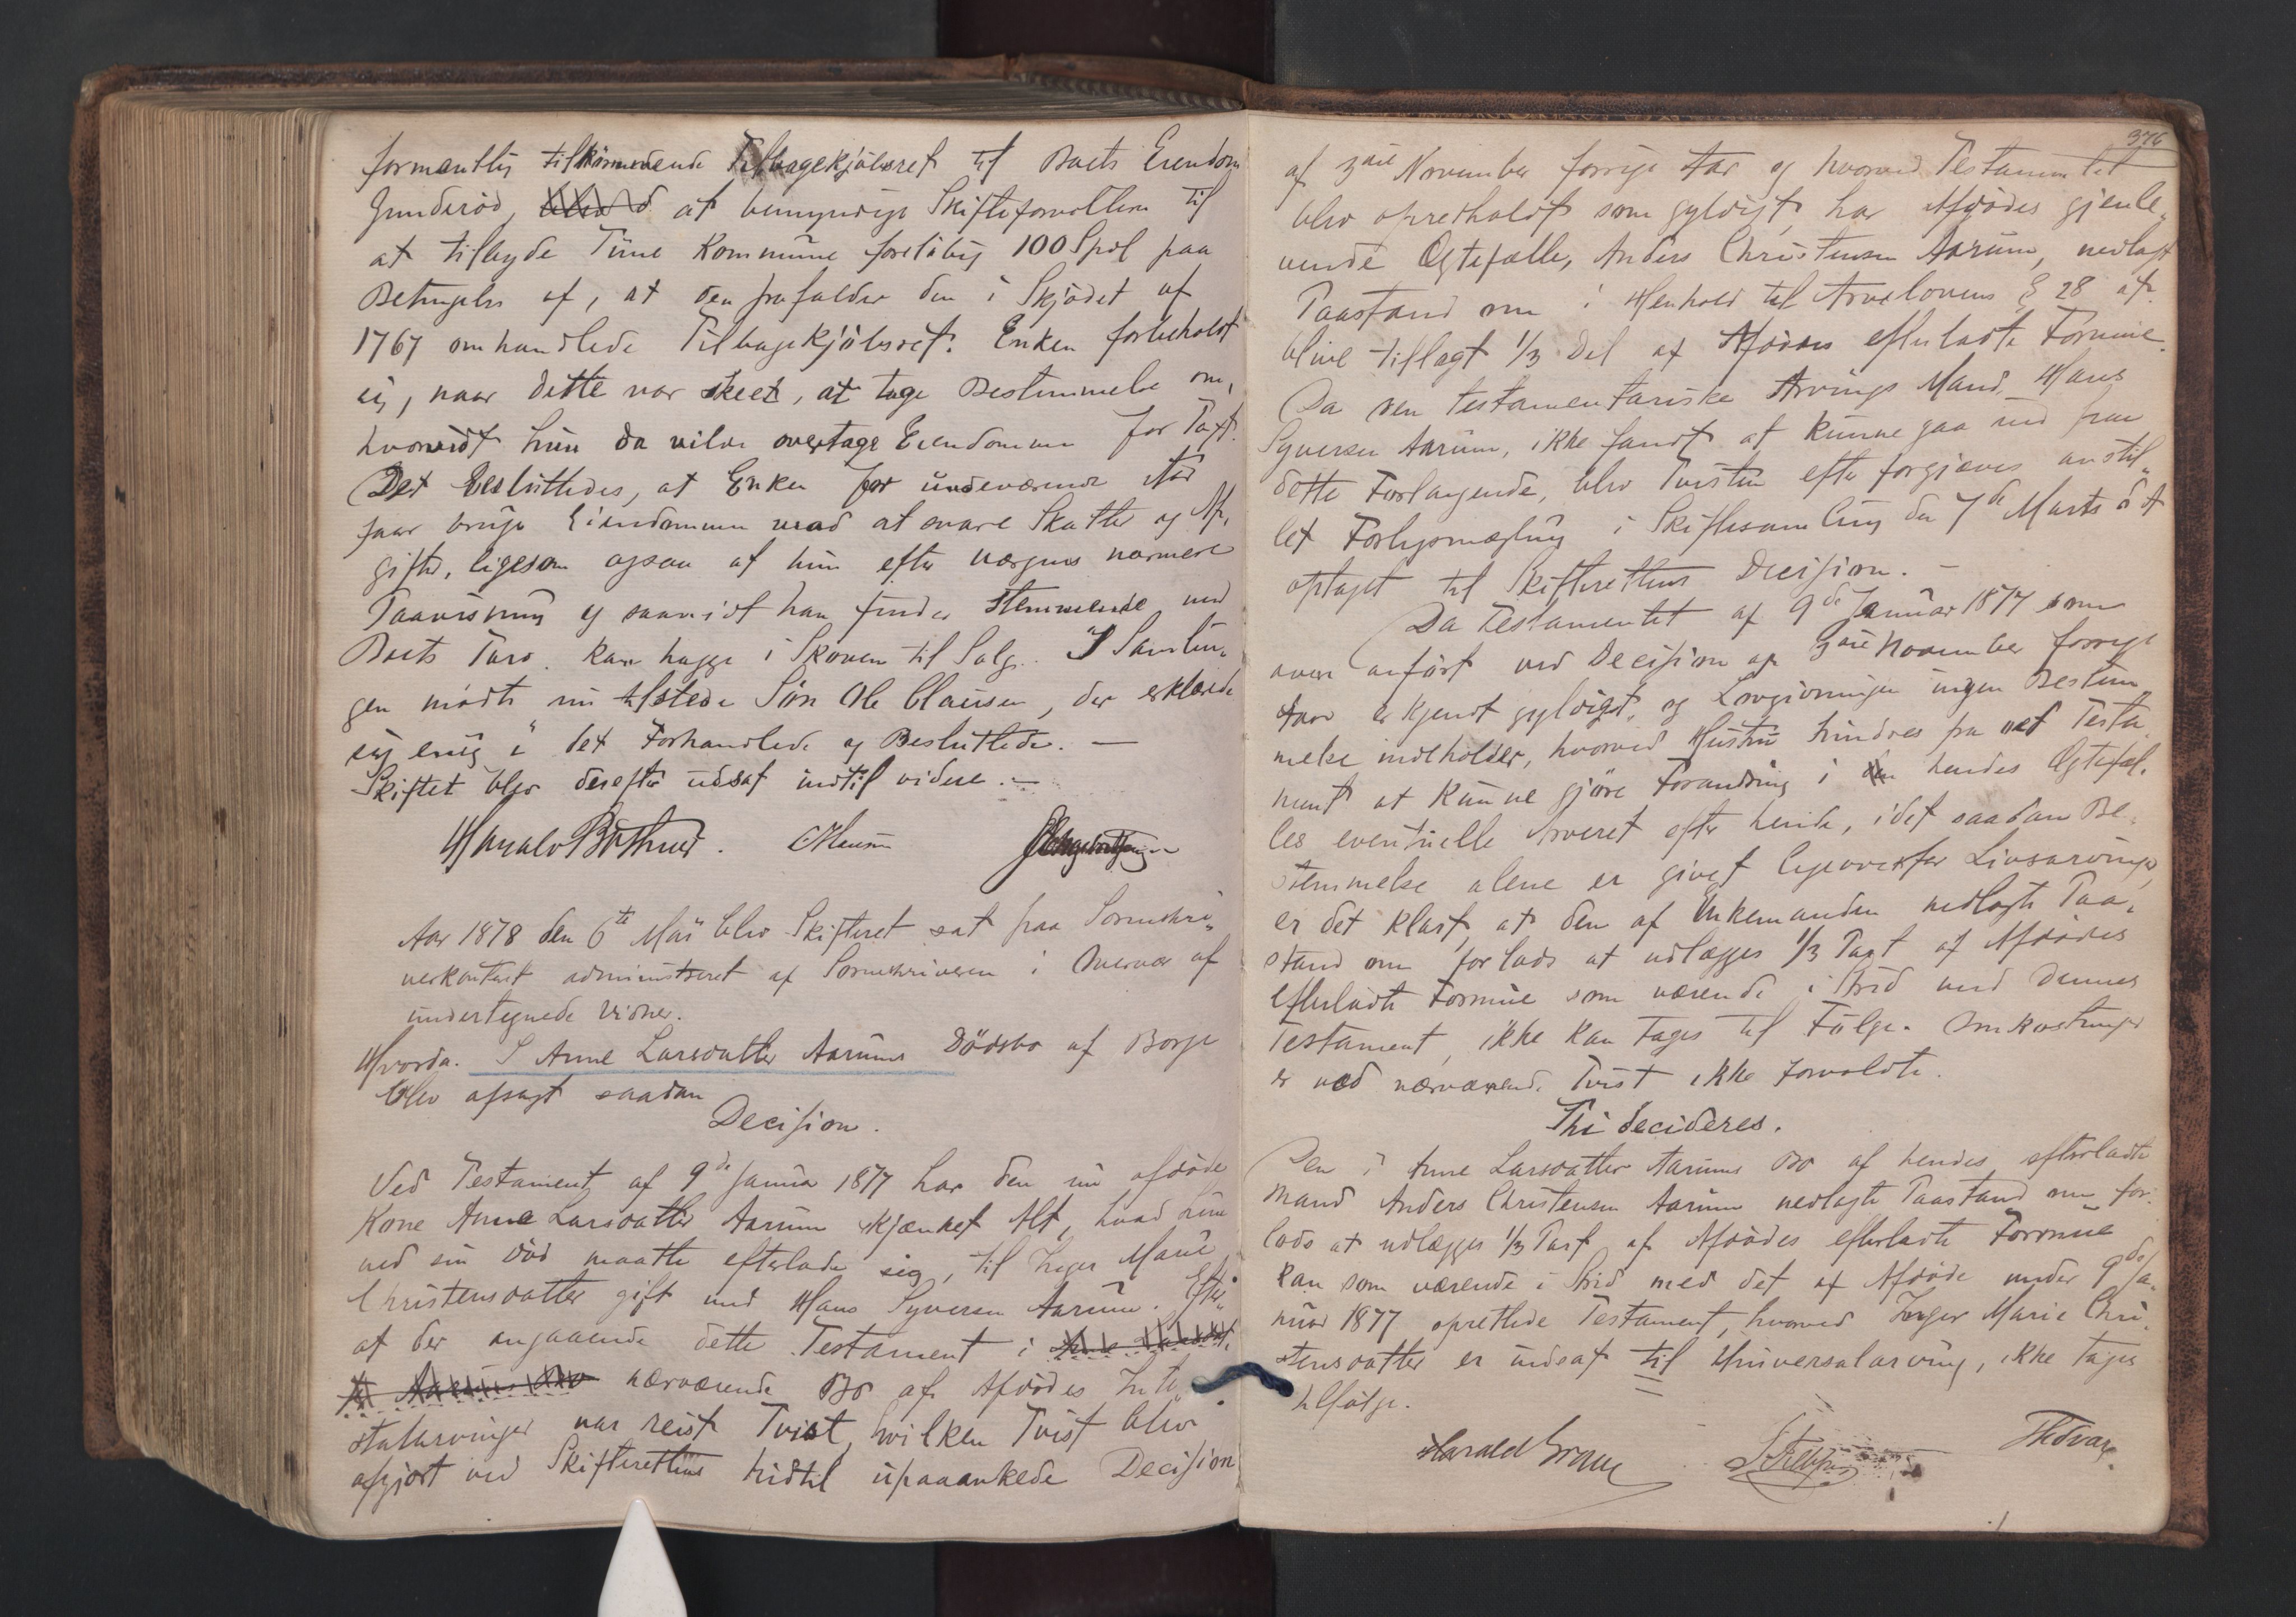 formentlig tilkommende Tilbagekjøbsret til Boets Eiendom
Gunderød, at bemyndige Skifteforvalteren til
at tilbyde Tune Kommune foreløbig 100 Spd paa
Betingelse af, at den frafalder den i Skjødet af
1767 omhandlede Tilbagekjøbsret. Enken forbeholdt
sig, naar dette var skeet, at tage Bestemmelse om,
hvorvidt hun da vilde overtage Eiendommen for Taxt.
Det besluttedes, at Enken for indeværende Aar
faar bruge Eiendommen mod at svare Skatter og Af-
gifter, ligesom ogsaa at hun efter Værgens nærmere
Paavisning og saavidt han finder stemmende med
Boets Tarv kan hugge i Skoven til Salg. I Samlin-
gen mødte nu tilstede Søn Ole Clausen, der erklærede
sig enig i det Forhandlede og Besluttede. —
Skiftet blev derefter udsat indtil videre. —
Harald Bothner. CClausen
Aar 1878 den 6te Mai blev Skifteret sat paa Sorenskri-
verkontoret administreret af Sorenskriveren i Overvær af
undertegnede Vidner.
Hvorda. I Anne Larsdatter Aarums Dødsbo af Borge
blev afsagt saadan
Decision.
Ved Testament af 9de Januar 1877 har den nu afdøde
Kone Anne Larsdatter Aarum skjænket Alt, hvad hun
ved sin Død maatte efterlade sig, til Inger Marie
Christensdatter gift med Hans Syversen Aarum. Efter
at der angaaende dette Testament i
nærværende Bo af Afdødes Inte-
statarvinger var reist Tvist, hvilken Tvist blev
afgjort ved Skifterettens hidtil upaaankede Decision
376
af 3die November forrige Aar og hvorved Testamentet
blev opretholdt som gyldigt, har Afdødes gjenle-
vende Ægtefælle, Anders Christensen Aarum, nedlagt
Paastand om i Henhold til Arvelovens § 28 at
blive tillagt 1/3 Del af Afdødes efterladte Formue.
Da den testamentariske Arvings Mand, Hans
Syversen Aarum, ikke fandt at kunne gaa ind paa
dette Forlangende, blev Tvisten efter forgjæves anstil-
let Forligsmægling i Skiftesamling den 7de Marts d A
optaget til Skifterettens Decision. —
Da Testamentet af 9de Januar 1877 som
oven anført ved Decision af 3die November forrige
Aar er kjendt gyldigt, og Lovgivningen ingen Bestem-
melse indeholder, hvorved Hustru hindres fra ved Testa-
ment at kunne gjøre Forandring i hendes Ægtefæl-
les eventuelle Arveret efter hende, idet saadan Be-
stemmelse alene er givet ligeoverfor Livsarvinger,
er det klart, at den af Enkemanden nedlagte Paa-
stand om forlods at udlægges 1/3 Part af Afdødes
efterladte Formue som værende i Strid med dennes
Testament, ikke kan tages til Følge. Omkostninger
er ved nærværende Tvist ikke forvoldte.
Thi decideres.
Den i Anne Larsdatter Aarums Bo af hendes efterladte
Mand Anders Christensen Aarum nedlagte Paastand om for-
lods at udlægges 1/3 Part af Afdødes efterladte Formue
kan som værende i Strid med det af Afdøde under 9de Ja-
nuar 1877 oprettede Testament, hvorved Inger Marie Chri-
stensdatter er indsat til Universalarving, ikke tages
tilfølge.
Harald